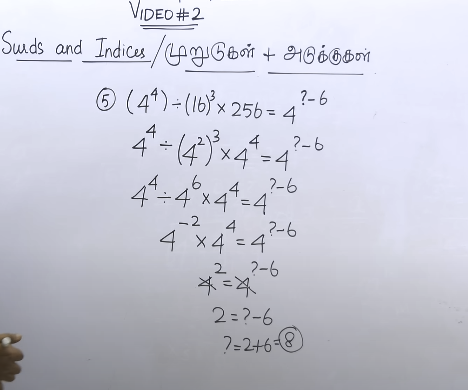 VIDEO #2
Surds and Indices / முறுடுகள் + அடுக்குகள்
⑤ (4⁴) ÷ (16)³ × 256 = 4^?-6
4⁴ ÷ (4²)³ × 4⁴ = 4^?-6
4⁴ ÷ 4⁶ × 4⁴ = 4^?-6
4⁻² × 4⁴ = 4^?-6
4² = 4^?-6
2 = ?-6
? = 2+6 = ⑧